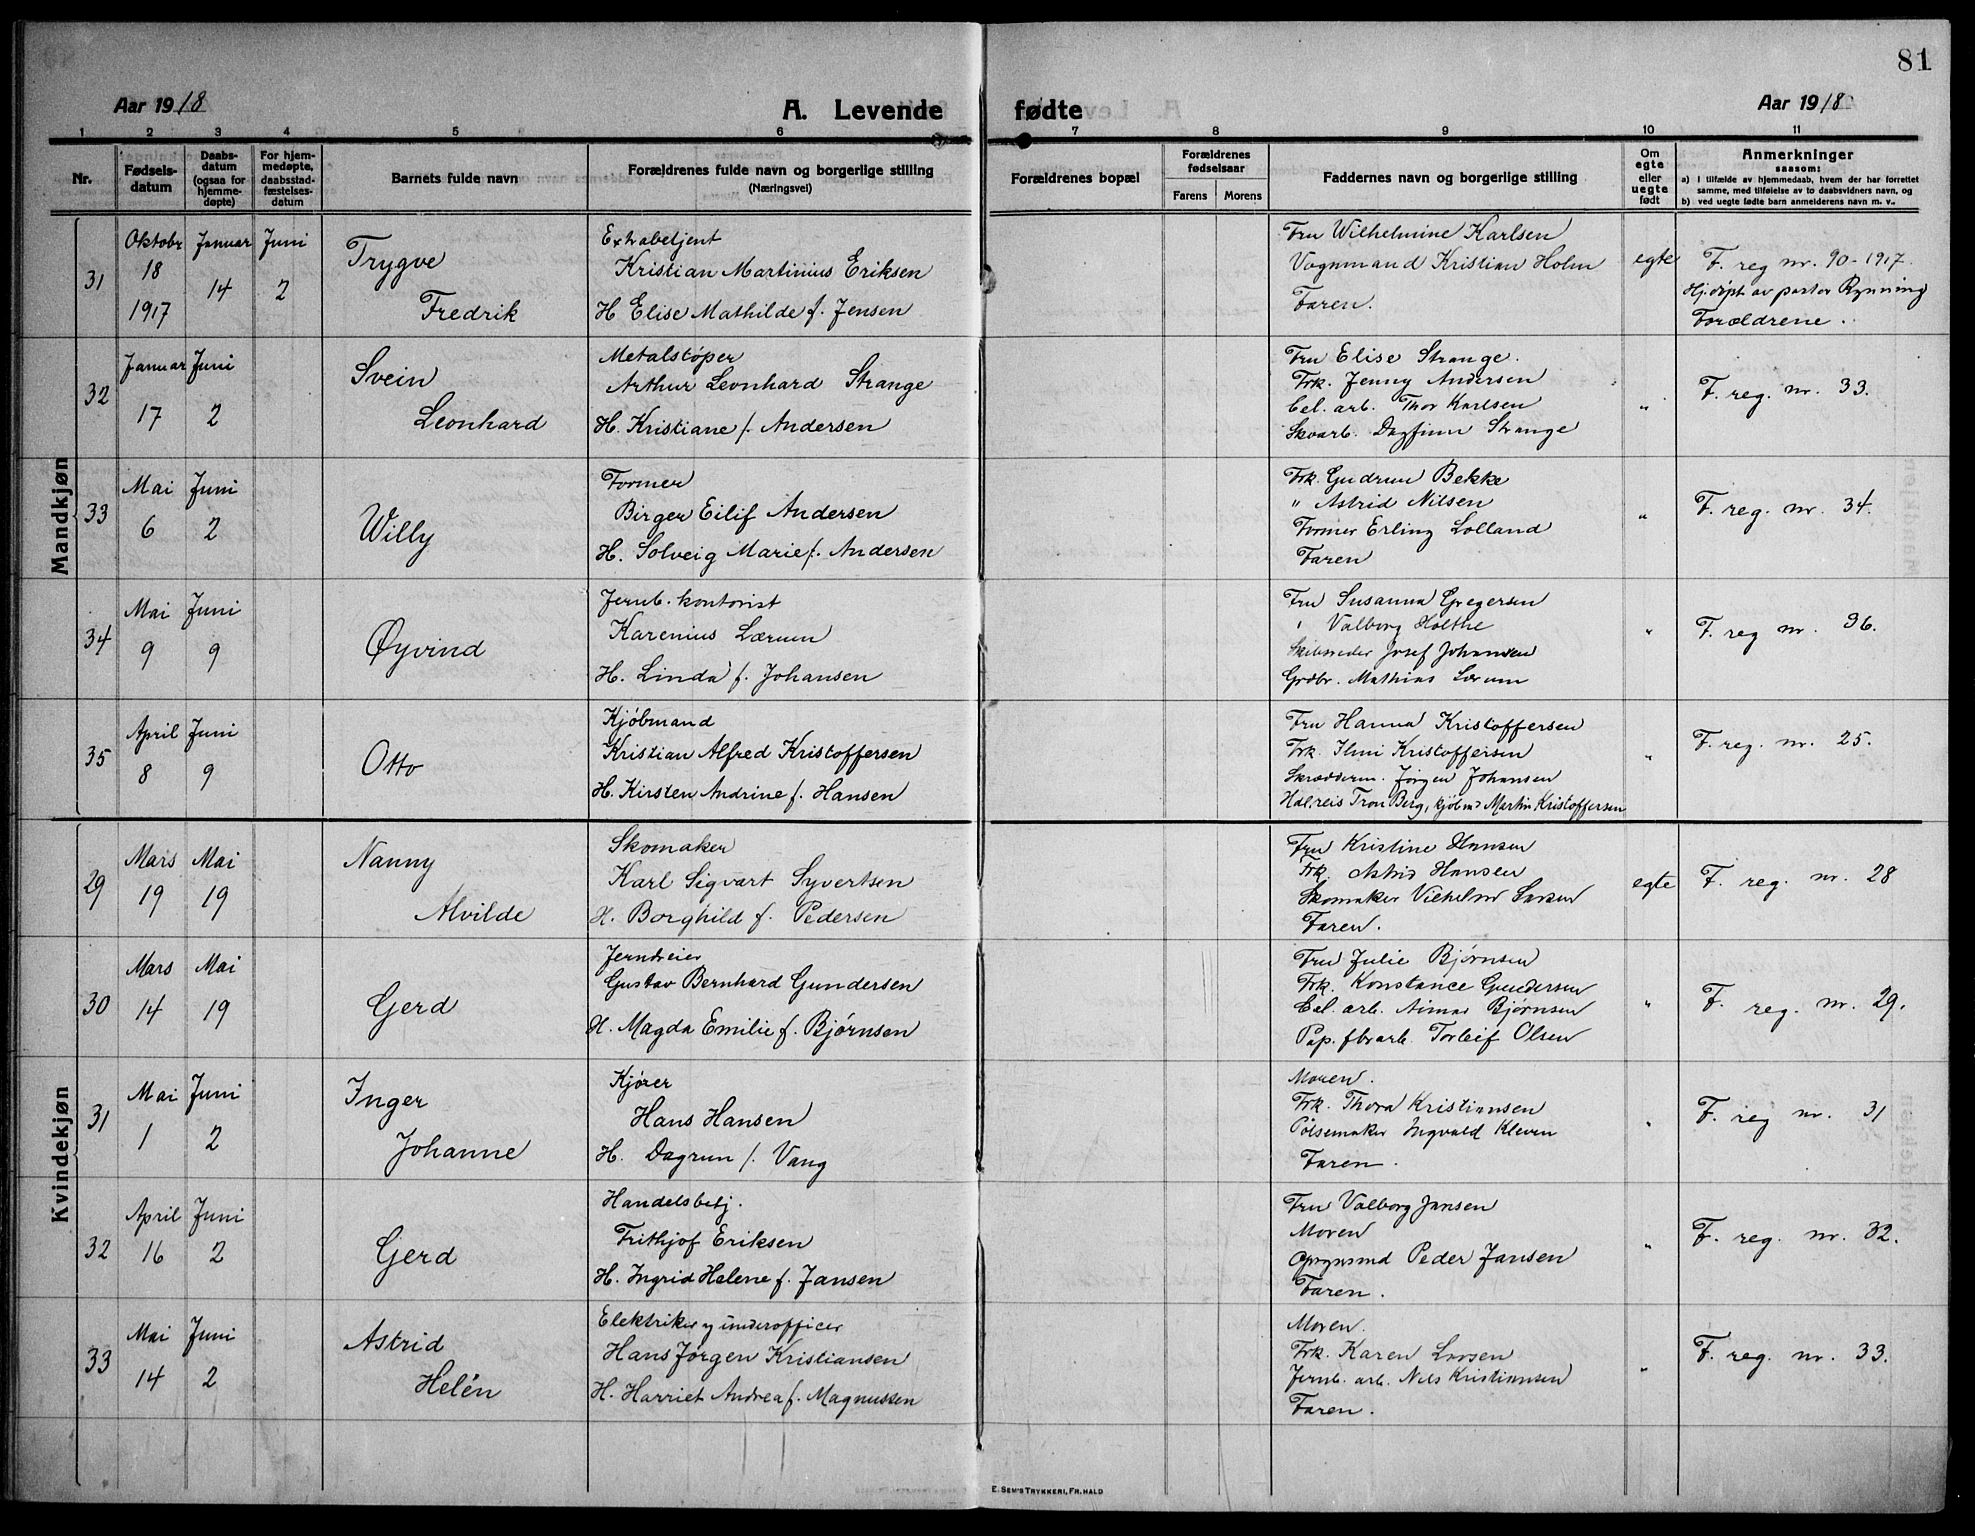 81
Aar 1918
A. Levende fødte
Aar 1918
1 2 3 4 5 6 7 8 9 10 11
Nr.
Fødsels-
datum
Daabs-
datum
(ogsaa for
hjemme-
døpte)
For hjem-
medøpte,
daabsstad-
fæstelses-
datum
Barnets fulde navn
Forældrenes fulde navn og borgerlige stilling
(Næringsvei)
Forældrenes bopæl
Forældrenes
fødselsaar
Farens Morens
Faddernes navn og borgerlige stilling
Om
egte
eller
uegte
født
Anmerkninger
saasom:
a) I tilfælde av hjemmedaab, hvem der har forrettet
samme, med tilføielse av to daabsvidners navn, og
b) ved uegte fødte barn anmelderens navn m. v.
Mandkjøn
31
Oktobr
18
1917
Januar
14
Juni
2
Trygve
Fredrik
Extrabetjent
Kristian Martinius Eriksen
H Elise Mathilde f. Jensen
Fru Wilhelmine Karlsen
Vognmand Kristian Holm
Faren.
egte
F. reg nr. 90-1917.
Hj.døpt av pastor Rynning
Forældrene.
32
Januar
17
Juni
2
Svein
Leonhard
Metalstøper
Arthur Leonhard Strange
H. Kristiane f. Andersen
Fru Elise Strange.
Frk. Jenny Andersen
Cel. arb. Thor Karlsen
Skoarb. Dagfinn Strange
"
F. reg. nr. 33.
33
Mai
6
Juni
2
Willy
Former
Birger Eilif Andersen
H. Solveig Marie f. Andersen
Frk. Gudrun Bekke
" Astrid Nilsen
Former Erling Lolland
Faren
"
F. reg. nr. 34.
34
Mai
9
Juni
9
Øyvind
Jernb. kontorist
Karenius Lærum
H. Linda f. Johansen
Fru Susanna Gregersen
" Valborg Holthe
Skibsreder Josef Johansen
Grdbr. Mathias Lærum
"
F. reg nr. 36.
35
April
8
Juni
9
Otto
Kjøbmand
Kristian Alfred Kristoffersen
H. Kirsten Andrine f. Hansen
Fru Hanna Kristoffersen
Frk. Ilmi Kristoffersen
Skrædderm. Jørgen Johansen
Hdlreis Tron Berg, kjøbm Martin Kristoffersen
"
F. reg. nr. 25.
Kvindekjøn
29
Mars
19
Mai
19
Nanny
Alvilde
Skomaker
Karl Sigvart Syvertsen
H. Borghild f. Pedersen
Fru Kristine Hansen
Frk. Astrid Hansen
Skomaker Vilhelm Larsen
Faren.
egte
F. reg. nr. 28
30
Mars
14
Mai
19
Gerd
Jerndreier
Gustav Bernhard Gundersen
H. Magda Emilie f. Bjørnsen
Fru Julie Bjørnsen
Frk. Konstance Gundersen
Cel. arb. Aimar Bjørnsen
Pap.fbrarb. Torleif Olsen
"
F. reg. nr. 29.
31
Mai
1
Juni
2
Inger
Johanne
Kjører
Hans Hansen
H. Dagrun f. Vang
Moren.
Frk. Thora Kristiansen
Pølsemaker Ingvald Kleven
Faren.
"
F. reg nr. 31
32
April
16
Juni
2
Gerd
Handelsbetj.
Frithjof Eriksen
H. Ingrid Helene f. Jansen
Fru Valborg Jansen
Moren
Opsynsmd Peder Jansen
Faren.
"
F. reg. nr. 32.
33
Mai
14
Juni
2
Astrid
Helén
Elektriker og underofficer
Hans Jørgen Kristiansen
H. Harriet Andrea f. Magnussen
Moren.
Frk. Karen Larsen
Jernb. arb. Nils Kristiansen
Faren.
"
F. reg. nr. 33.
E. SEM'S TRYKKERI, FR.HALD